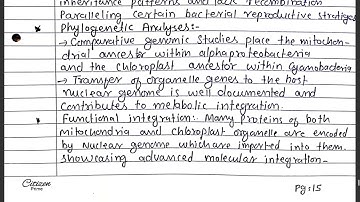 inheritance patterns and lack recombination
Paralleling certain bacterial reproductive strategies
* Phylogenetic Analyses:-
→ Comparative genomic studies place the mitochon-
drial ancestor within alphaproteobacteria
and the chloroplast ancestor within Cyanobacteria
→ Transfer of organelle genes to the host
nuclear genome is well documented and
Contributes to metabolic integration.
* Functional integration:- Many proteins of both
mitochondria and chloroplast organelle are encoded
by Nuclear genome which are imported into them.
showcasing advanced molecular integration-
Citizen
Prime
Pg:15